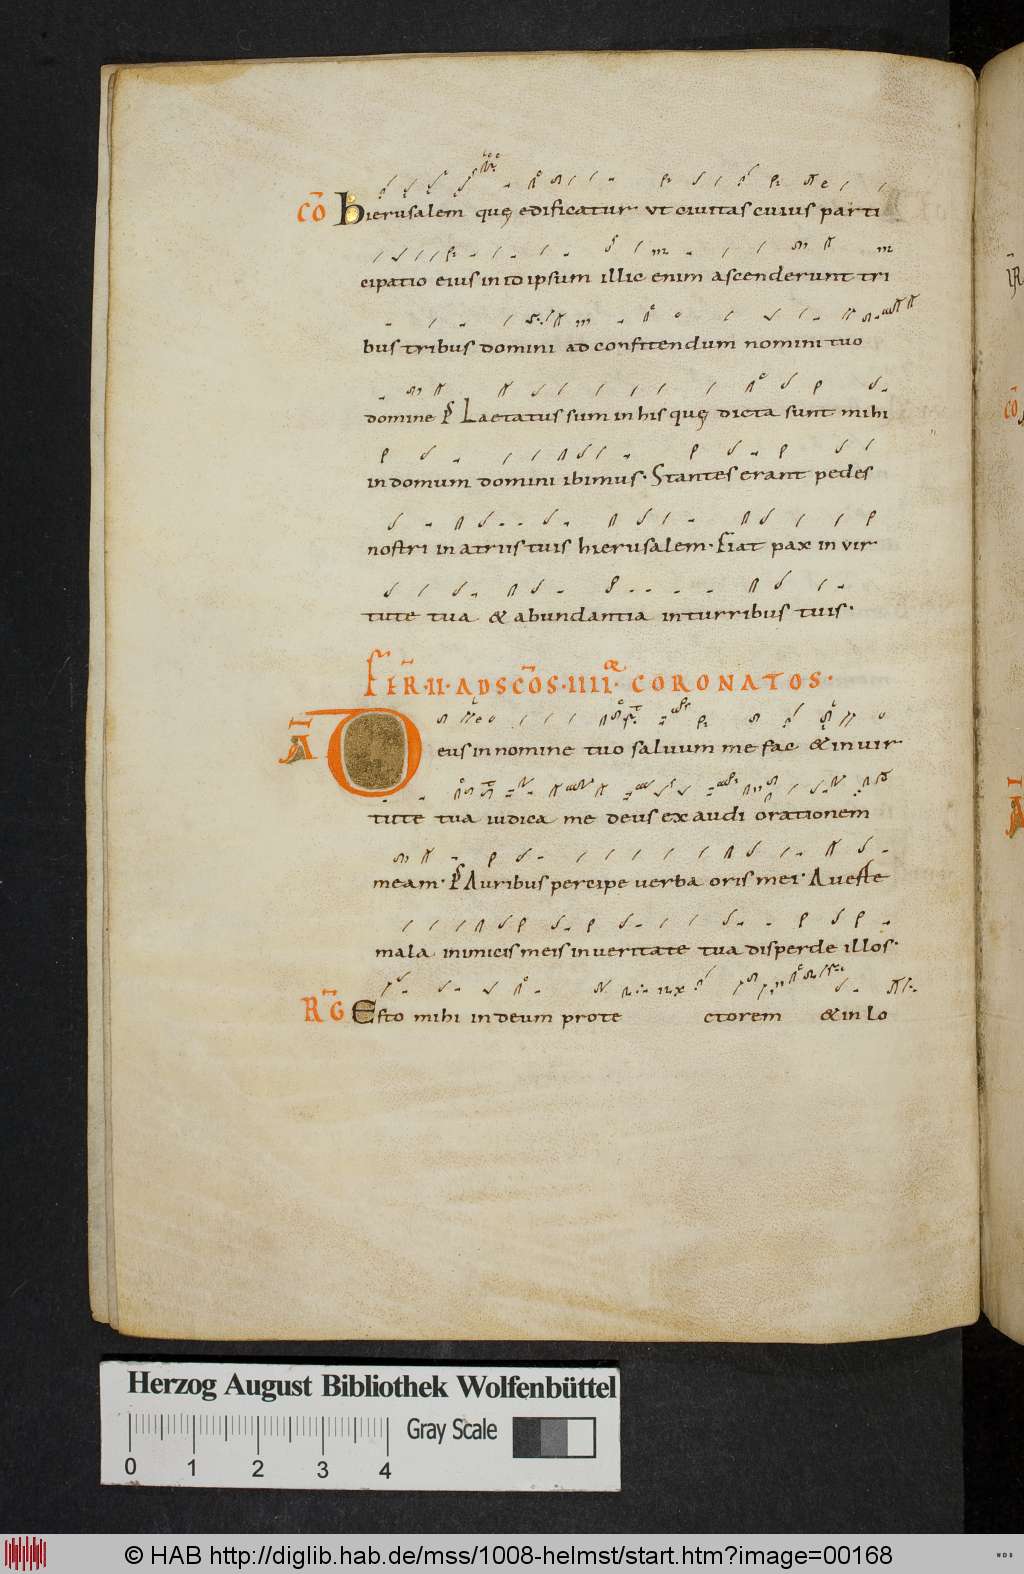 CŌ Hierusalem quę edificatur ut ciuitas cuius parti
cipatio eius in id ipsum illic enim ascenderunt tri
bus tribus domini ad confitendum nomini tuo
domine Ps Laetatus sum in his quę dicta sunt mihi
in domum domini ibimus. Stantes erant pedes
nostri in atriis tuis hierusalem. Fiat pax in vir
tute tua & abundantia in turribus tuis.
FER̄.II.AD SCŌS.IIII.ORꝶ CORONATOS.
A Deus in nomine tuo saluum me fac & in uir
tute tua iudica me deus exaudi orationem
meam. Ps Auribus percipe uerba oris mei. Auerte
mala inimicis meis in ueritate tua disperde illos.
R̄G Esto mihi in deum prote ctorem & in lo
Herzog August Bibliothek Wolfenbüttel
0 1 2 3 4
Gray Scale
© HAB http://diglib.hab.de/mss/1008-helmst/start.htm?image=00168